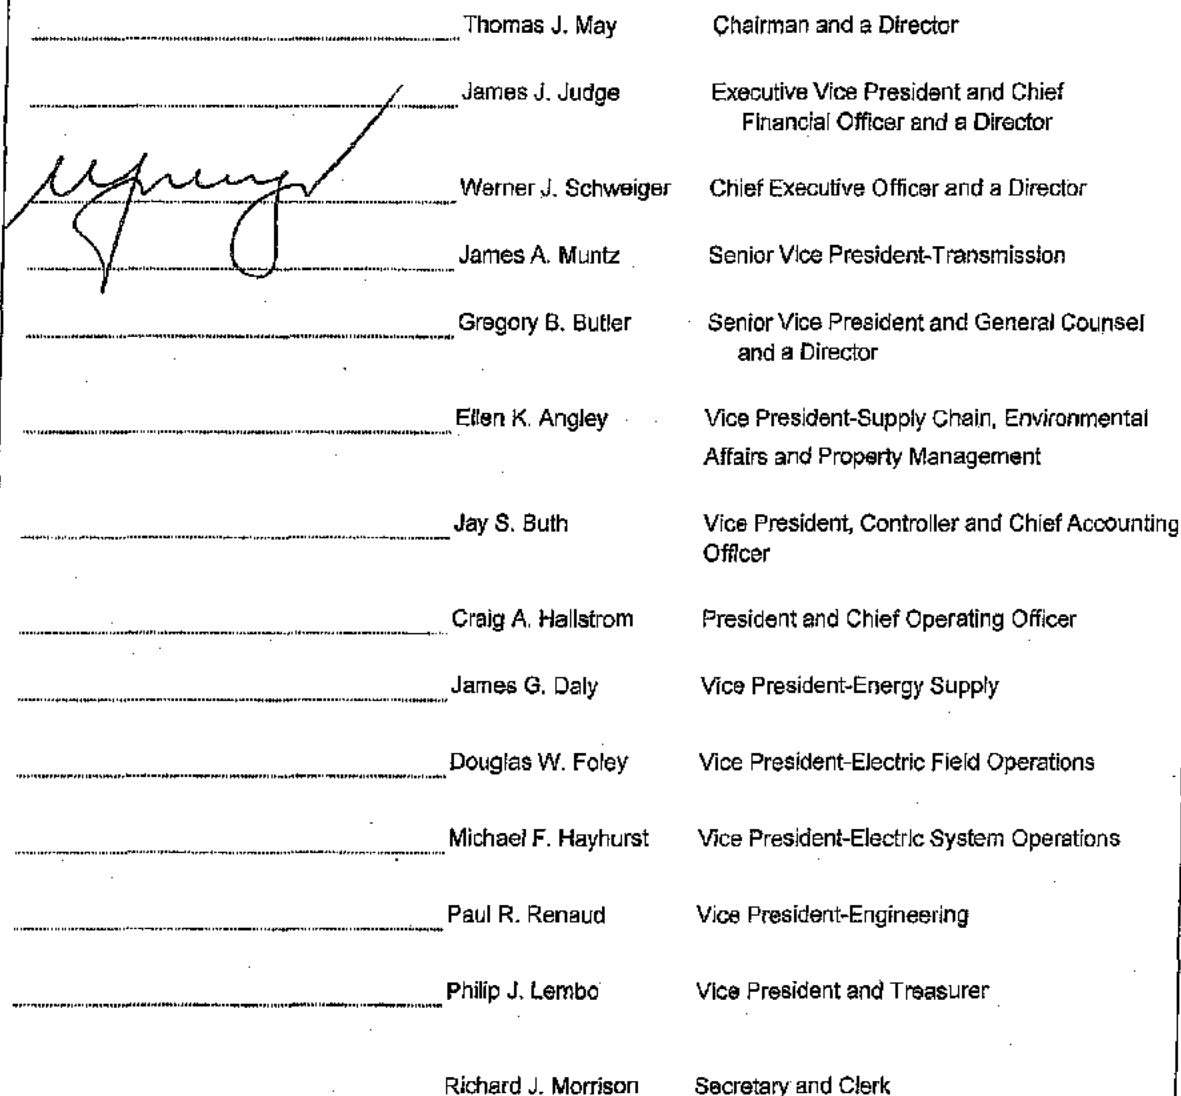 Thomas J. May Chairman and a Director
James J. Judge Executive Vice President and Chief
Financial Officer and a Director
Werner J. Schweiger Chief Executive Officer and a Director
James A. Muntz Senior Vice President-Transmission
Gregory B. Butler Senior Vice President and General Counsel
and a Director
Ellen K. Angley Vice President-Supply Chain, Environmental
Affairs and Property Management
Jay S. Buth Vice President, Controller and Chief Accounting
Officer
Craig A. Hallstrom President and Chief Operating Officer
James G. Daly Vice President-Energy Supply
Douglas W. Foley Vice President-Electric Field Operations
Michael F. Hayhurst Vice President-Electric System Operations
Paul R. Renaud Vice President-Engineering
Philip J. Lembo Vice President and Treasurer
Richard J. Morrison Secretary and Clerk